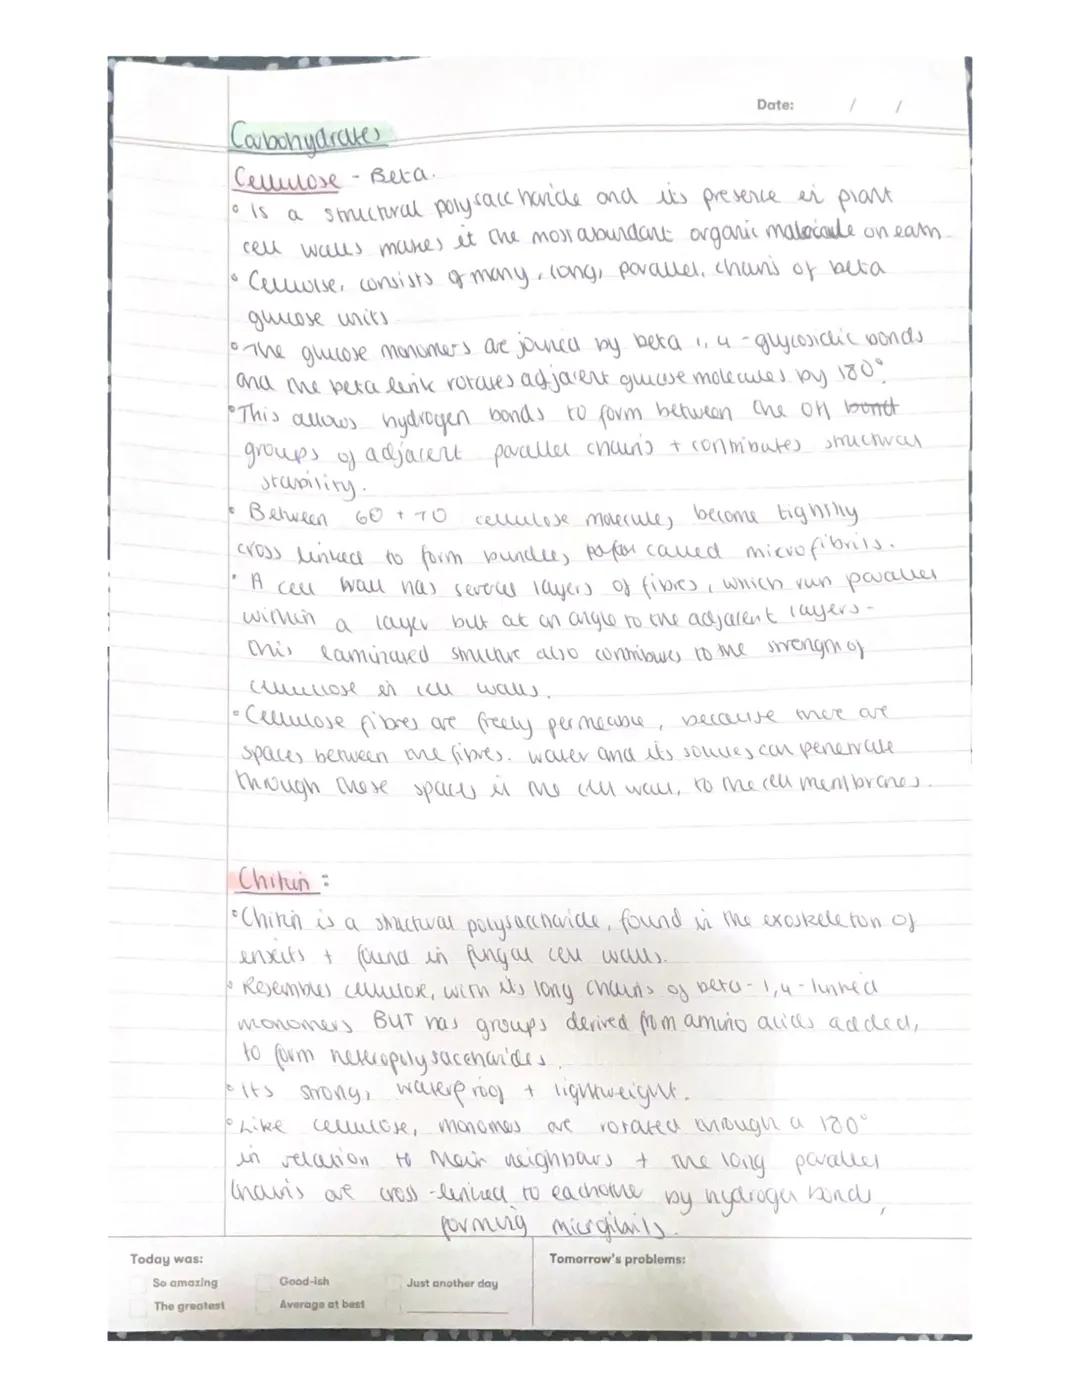 Date: / /
Carbohydrates
Cellulose - Beta.
• Is a structural polysaccharide and its presence in plant
cell walls makes it the most abundant organic molecule on earth.
• Cellulose, consists of many, long, parallel, chains of beta
glucose units
• The glucose monomers are joined by beta 1, 4 - glycosidic bonds
and the beta link rotates adjacent glucose molecules by 180°.
• This allows hydrogen bonds to form between the OH bond
groups of adjacent parallel chains + contributes structural
stability.
• Between 60 + 70 cellulose molecules become tightly
cross linked to form bundles, called microfibrils.
• A cell wall has several layers of fibres, which run parallel
within a layer but at an angle to the adjacent layers -
this laminated structure also contributes to the strength of
cellulose in cell walls.
• Cellulose fibres are freely permeable, because there are
spaces between the fibres. water and its solutes can penetrate
through these spaces in the cell wall, to the cell membranes.
Chitin :
• Chitin is a structural polysaccharide, found in the exoskeleton of
insects + found in fungal cell walls.
• Resembles cellulose, with its long chains of beta - 1,4 - linked
monomers BUT has groups derived from amino acids added,
to form heteropolysaccharides.
• Its strong, waterproof + lightweight.
• Like cellulose, monomers are rotated through a 180°
in relation to their neighbours + the long parallel
chains are cross - linked to eachother by hydrogen bonds,
forming microfibrils.
Today was:
So amazing
Good-ish
Just another day
The greatest
Average at best
Tomorrow's problems: